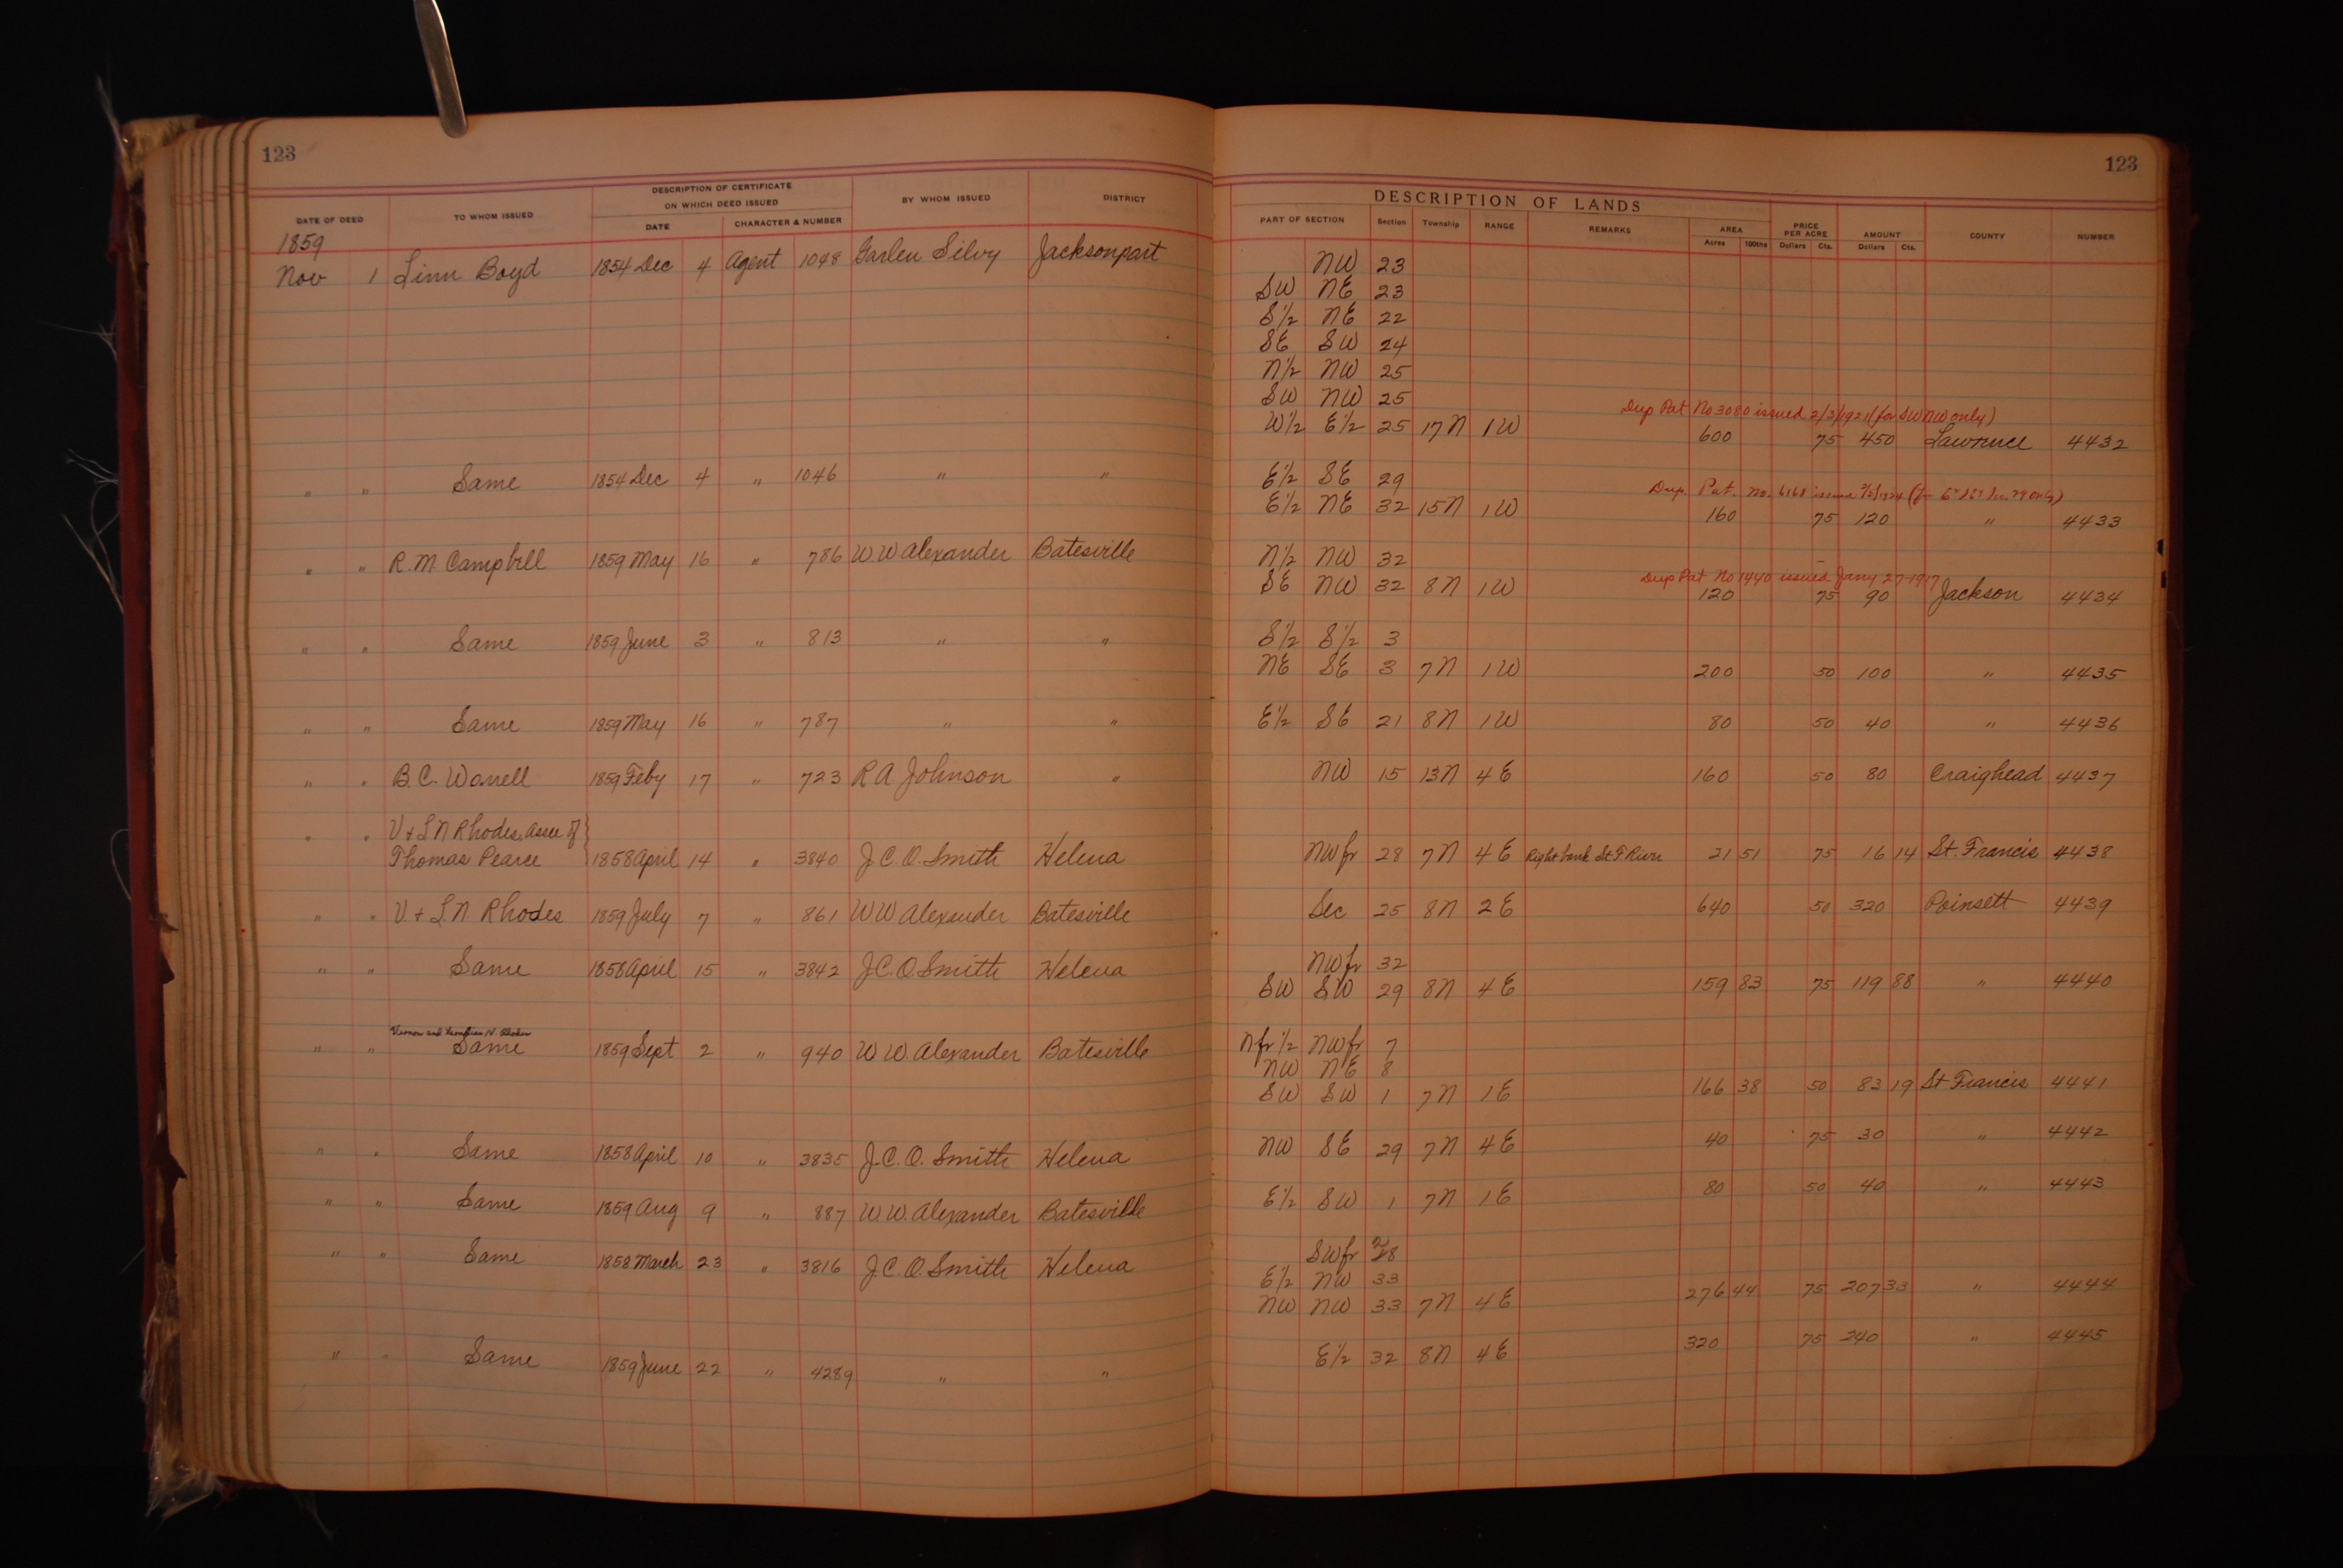 123
123
DESCRIPTION OF CERTIFICATE
ON WHICH DEED ISSUED
DATE OF DEED TO WHOM ISSUED DATE CHARACTER & NUMBER BY WHOM ISSUED DISTRICT
DESCRIPTION OF LANDS
PART OF SECTION Section Township RANGE REMARKS AREA PRICE PER ACRE AMOUNT COUNTY NUMBER
Acres 100ths Dollars Cts. Dollars Cts.
1859
Nov 1 Linn Boyd 1854 Dec 4 Agent 1048 Garlen Silvy Jacksonport NW 23
SW NE 23
S½ NE 22
SE SW 24
N½ NW 25
SW NW 25
Dup Pat No 3080 issued 2/3/1921 (for SW NW only)
W½ E½ 25 17N 1W 600 75 450 Lawrence 4432
" " Same 1854 Dec 4 " 1046 " " E½ SE 29
Dup. Pat. no. 6168 issued (for E½ SE¼ Sec. 29 only)
E½ NE 32 15N 1W 160 75 120 " 4433
" " R. M. Campbell 1859 May 16 " 786 W. W. Alexander Batesville N½ NW 32
Dup Pat No 1440 issued Jany 27-1917
SE NW 32 8N 1W 120 75 90 Jackson 4434
" " Same 1859 June 3 " 813 " " S½ S½ 3
NE SE 3 7N 1W 200 50 100 " 4435
" " Same 1859 May 16 " 787 " " E½ SE 21 8N 1W 80 50 40 " 4436
" " B. C. Worrell 1859 Feby 17 " 723 R A Johnson " NW 15 13N 4E 160 50 80 Craighead 4437
" " V & L N Rhodes, assee of }
Thomas Pearce 1858 April 14 " 3840 J. C. O. Smith Helena NW fr 28 7N 4E Right bank St. F River 21 51 75 16 14 St. Francis 4438
" " V. & L. N Rhodes 1859 July 7 " 861 W W Alexander Batesville Sec 25 8N 2E 640 50 320 Poinsett 4439
" " Same 1858 April 15 " 3842 J. C. O. Smith Helena NW fr 32
SW SW 29 8N 4E 159 83 75 119 88 " 4440
Vernon and N. Rhodes
" " Same 1859 Sept 2 " 940 W W. Alexander Batesville N fr ½ NW fr 7
NW NE 8
SW SW 1 7N 1E 166 38 50 83 19 St Francis 4441
" " Same 1858 April 10 " 3835 J. C. O. Smith Helena NW SE 29 7N 4E 40 75 30 " 4442
" " Same 1859 Aug 9 " 887 W. W. Alexander Batesville E½ SW 1 7N 1E 80 50 40 " 4443
" " Same 1858 March 23 " 3816 J. C. O. Smith Helena SW fr 28
E½ NW 33
NW NW 33 7N 4E 276 44 75 207 33 " 4444
" " Same 1859 June 22 " 4289 " " E½ 32 8N 4E 320 75 240 " 4445